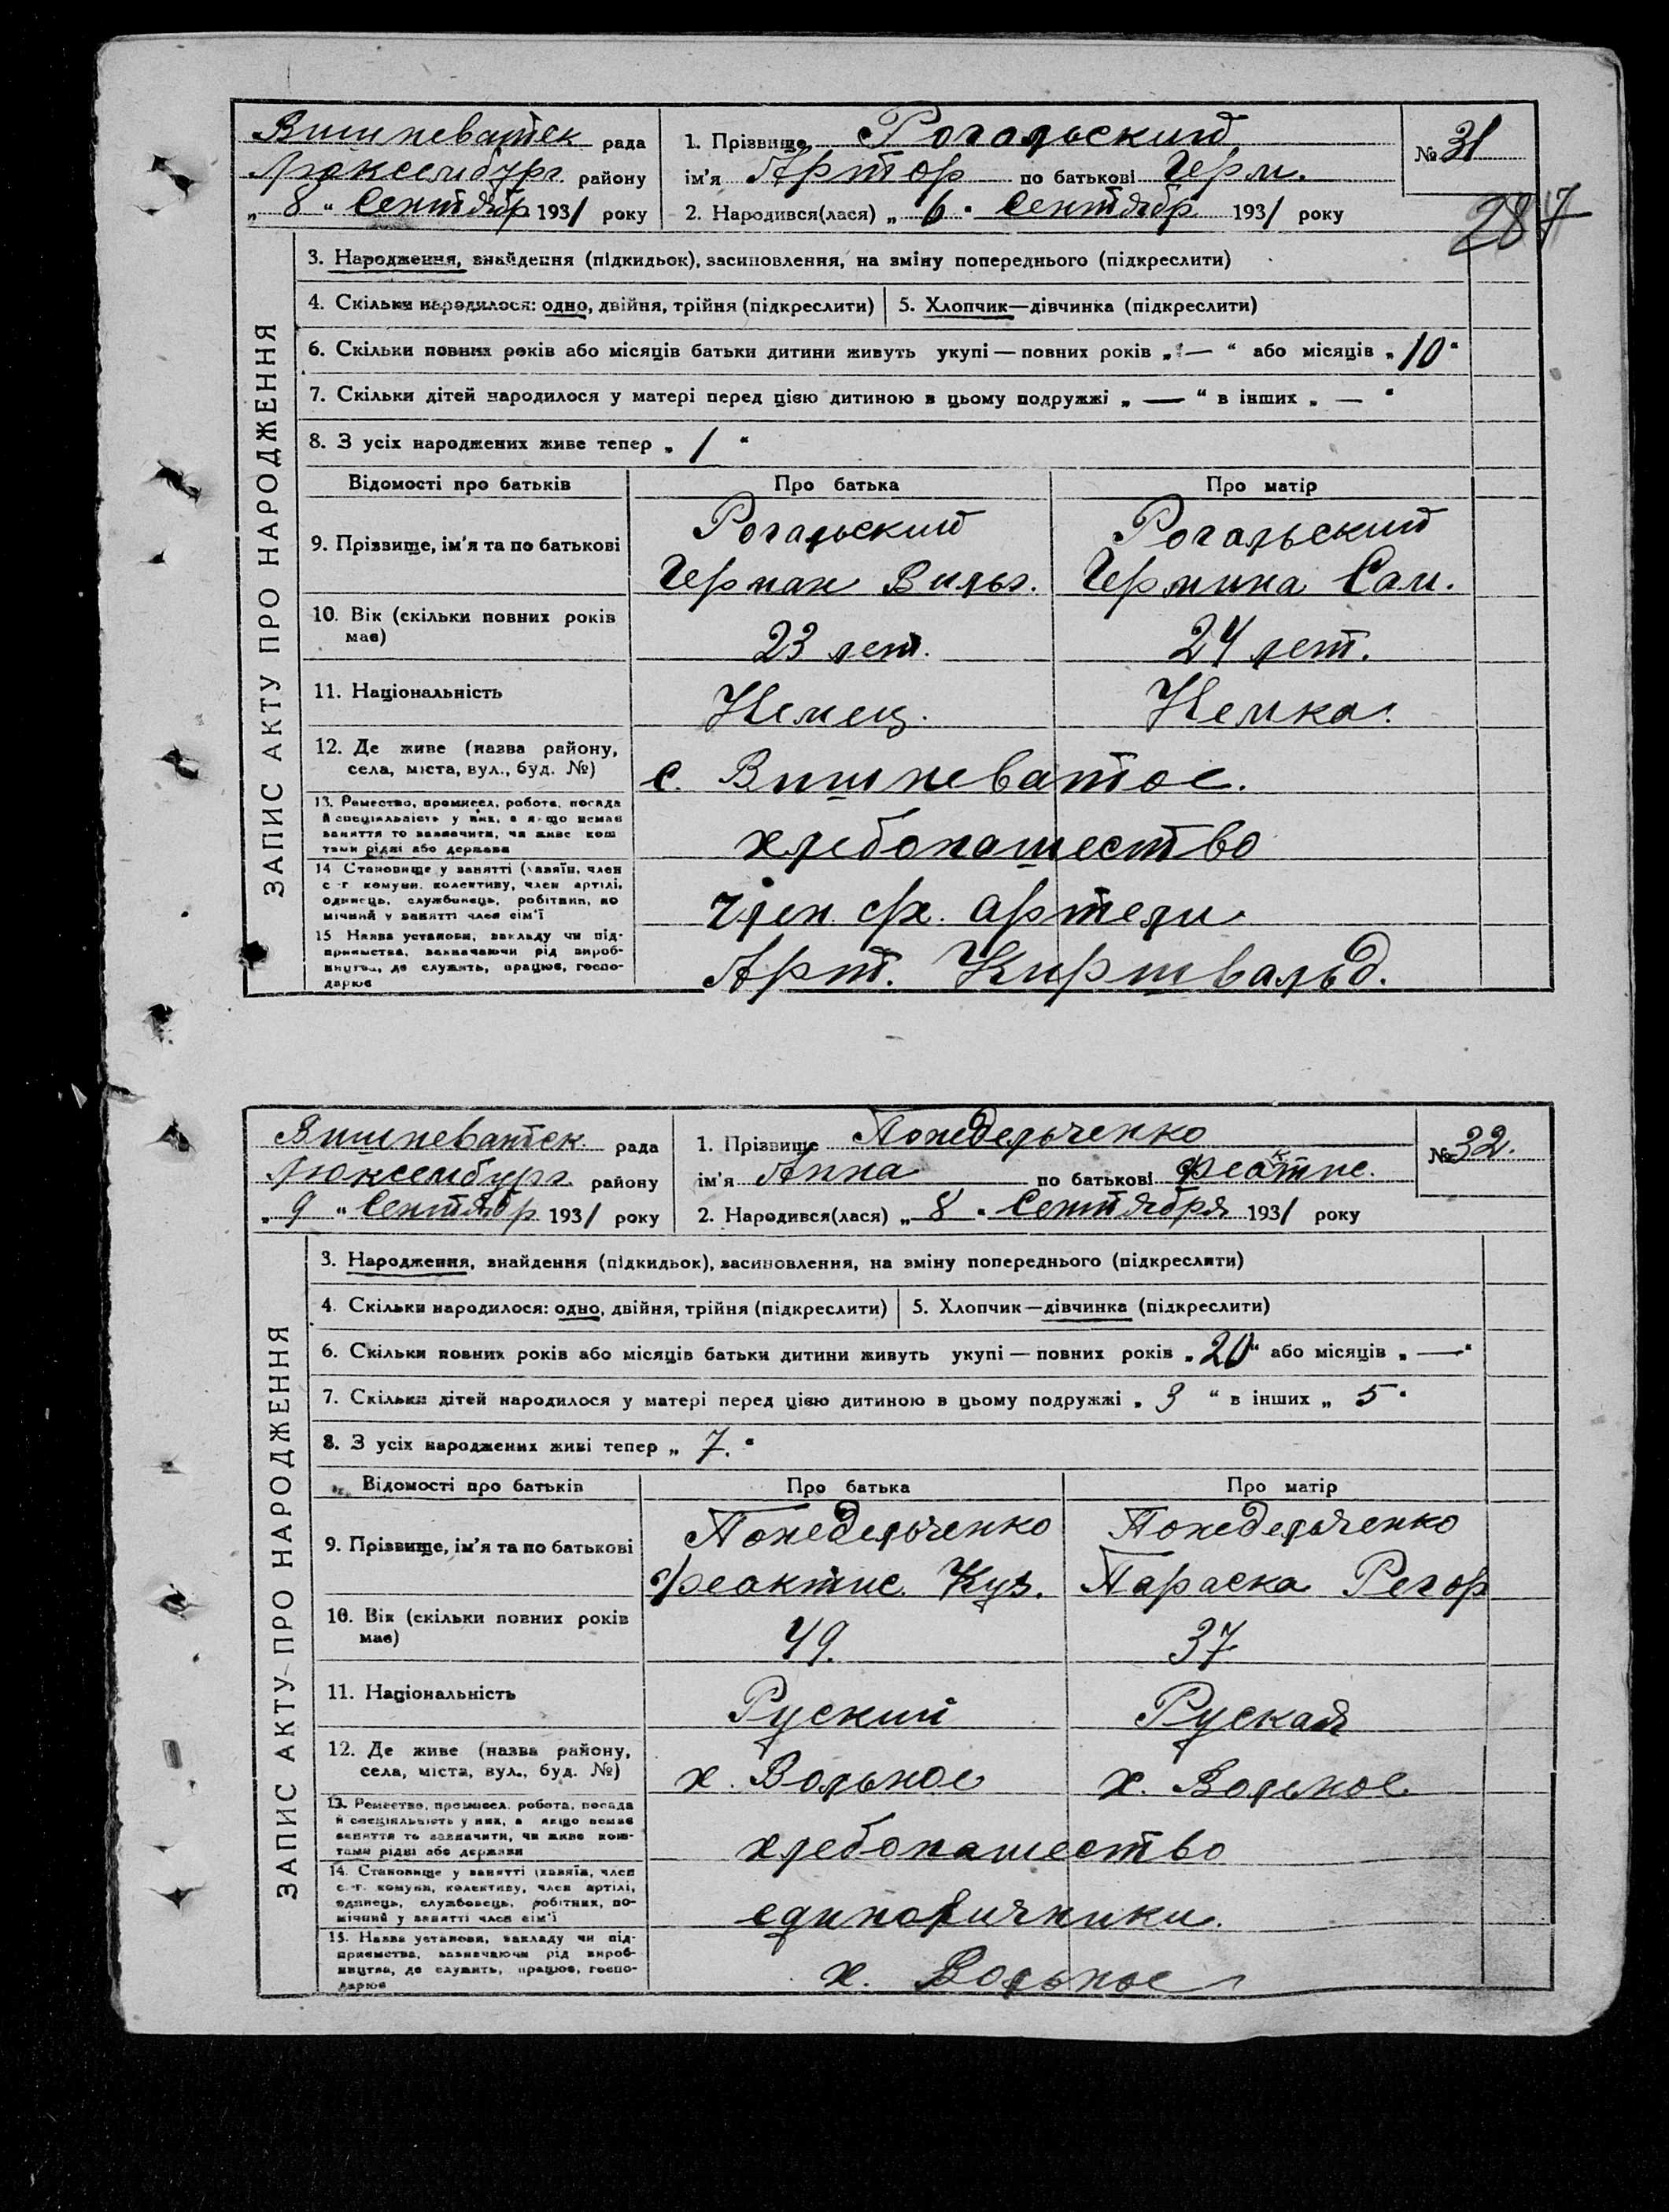 Вишневатск рада
Люксембург району
„ 8 “ Сентябр 1931 року
1. Прізвище Рогальский
ім'я Артор по батькові Герм.
2. Народився(лася) „ 6 “ Сентябр 1931 року
№ 31
287
ЗАПИС АКТУ ПРО НАРОДЖЕННЯ
3. Народження, знайдення (підкидьок), засиновлення, на зміну попереднього (підкреслити)
4. Скільки народилося: одно, двійня, трійня (підкреслити) 5. Хлопчик—дівчинка (підкреслити)
6. Скільки повних років або місяців батьки дитини живуть укупі — повних років „ — “ або місяців „ 10 “
7. Скільки дітей народилося у матері перед цією дитиною в цьому подружжі „ — “ в інших „ — “
8. З усіх народжених живе тепер „ 1 “
Відомості про батьків Про батька Про матір
9. Прізвище, ім'я та по батькові
Рогальский
Герман Вильг.
Рогальский
Гермина Сам.
10. Вік (скільки повних років
має)
23 лет.
24 лет.
11. Національність
Немец.
Немка.
12. Де живе (назва району,
села, міста, вул., буд. №)
с. Вишневатое.
13. Ремество, промисел, робота, посада
й спеціяльність у них, а якщо немає
заняття то зазначити, чи живе кош
тами рідні або держави
хлебопашество
14 Становище у занятті (хазяїн, член
с-г комуни, колективу, член артілі,
одинець, службовець, робітник, по
мічний у занятті член сім'ї
член с/х. артели
15 Назва установи, закладу чи під-
приємства, зазначаючи рід вироб-
ництва, де служить, працює, госпо-
дарює
Арт. Киршвальд.
Вишневатск рада
Люксембург району
„ 9 “ Сентябр 1931 року
1. Прізвище Понедельченко
ім'я Анна по батькові Феактис.
2. Народився(лася) „ 8 “ Сентября 1931 року
№ 32.
ЗАПИС АКТУ ПРО НАРОДЖЕННЯ
3. Народження, знайдення (підкидьок), засиновлення, на зміну попереднього (підкреслити)
4. Скільки народилося: одно, двійня, трійня (підкреслити) 5. Хлопчик—дівчинка (підкреслити)
6. Скільки повних років або місяців батьки дитини живуть укупі — повних років „ 20 “ або місяців „ — “
7. Скільки дітей народилося у матері перед цією дитиною в цьому подружжі „ 3 “ в інших „ 5 “
8. З усіх народжених живі тепер „ 7. “
Відомості про батьків Про батька Про матір
9. Прізвище, ім'я та по батькові
Понедельченко
Феактис Куз.
Понедельченко
Параска Регор
10. Вік (скільки повних років
має)
49.
37
11. Національність
Руский
Руская
12. Де живе (назва району,
села, міста, вул., буд. №)
х. Вольное
х. Вольное
13. Ремество, промисел, робота, посада
й спеціяльність у них, а якщо немає
заняття то зазначити, чи живе кош-
тами рідні або держави
хлебопашество
14. Становище у занятті (хазяїн, член
с.-г. комуни, колективу, член артілі,
одинець, службовець, робітник, по-
мічний у занятті член сім'ї
единоличники.
15. Назва установи, закладу чи під-
приємства, зазначаючи рід вироб-
ництва, де служить, працює, госпо-
дарює
х. Вольное